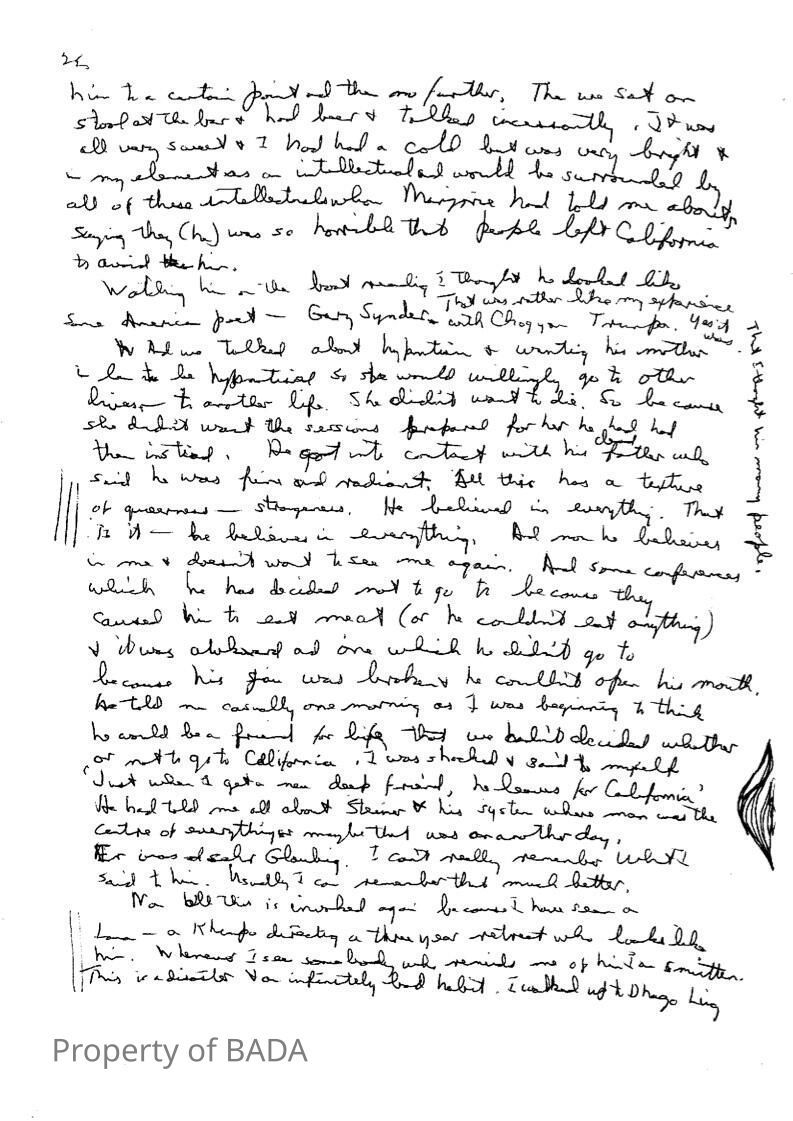 25
him to a certain point and then no further. The we sat on
stool at the bar & had beer & talked incessantly. It was
all very sweet & I had had a cold but was very bright &
in my element as an intellectual and would be surrounded by
all of these intellectuals whom Marjorie had told me about,
saying they (he) was so horrible that people left California
to avoid him.
Watching him on the boat reading I thought he looked like
some American poet — Gary Synder. That was rather like my experience
with Chogyam Trungpa. Yes it was.
That I thought him many people.
And we talked about hypnotism & wanting his mother
in law to be hypnotised so she would willingly go to other
lives — to another life. She didn't want to die. So because
she didn't want the sessions prepared for her he had had
them instead. He got into contact with his dead father who
said he was fine and radiant. All this has a texture
of queerness — strangeness. He believed in everything. That
is it — he believes in everything. And now he believes
in me & doesn't want to see me again. And some conferences
which he has decided not to go to because they
caused him to eat meat (or he couldn't eat anything)
& it was awkward and one which he didn't go to
because his jaw was broken & he couldn't open his mouth.
He told me casually one morning as I was beginning to think
he would be a friend for life that we hadn't decided whether
or not to go to California. I was shocked & said to myself
'Just when I get a new deep friend, he leaves for California'
He had told me all about Steiner & his system where man was the
centre of everything or maybe that was on another day.
Er was sehr I can't really remember what I
said to him. Usually I can remember this much better.
Now all this is invoked again because I have seen a
Lama — a Khenpo directing a three year retreat who looks like
him. Whenever I see somebody who reminds me of him I am smitten.
This is a disaster & an infinitely bad habit. I walked up to Dhagpo Ling
Property of BADA